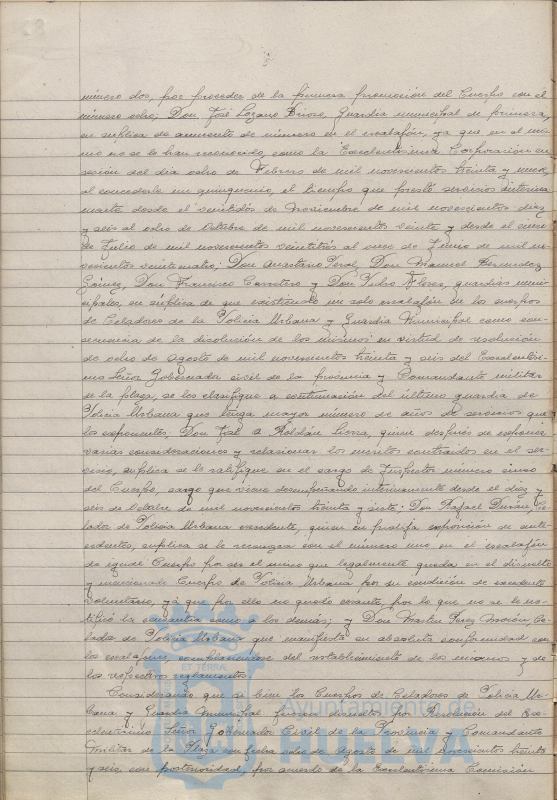 número dos, por proceder de la primera promoción del Cuerpo con el
número ocho; Don José Lozano Guardia municipal de primera,
en súplica de aumento de número en el escalafón, ya que en el mis-
mo no se le han reconocido, como la Excelentísima Corporación en
sesión del día ocho de Febrero de mil novecientos treinta y nueve,
al concederle un quinquenio, el tiempo que prestó servicios interina-
mente desde el veintidós de Noviembre de mil novecientos diez
y seis al ocho de Octubre de mil novecientos veinte y desde el cinco
de Julio de mil novecientos veintitrés al once de Junio de mil no-
vecientos veinticuatro; Don Anastasio Don Manuel Hernández
Gómez, Don Francisco y Don Pedro Flores, guardias muni-
cipales, en súplica de que existiendo un solo escalafón en los cuerpos
de Celadores de la Policía Urbana y Guardia Municipal como con-
secuencia de la disolución de los mismos en virtud de resolución
de ocho de Agosto de mil novecientos treinta y seis del Excelentísi-
mo Señor Gobernador civil de la provincia y Comandante militar
de la plaza, se les clasifique a continuación del último guardia de
Policía Urbana que tenga mayor número de años de servicios que
los exponentes. Don José A. Roldán quien después de exponer
varias consideraciones y relacionar los méritos contraídos en el ser-
vicio, suplica se le ratifique en el cargo de Inspector número cinco
del Cuerpo, cargo que viene desempeñando interinamente desde el diez y
seis de Octubre de mil novecientos treinta y siete; Don Rafael Durán, Ce-
lador de Policía Urbana excedente, quien en prolija exposición de ante-
cedentes, suplica se le reconozca con el número uno en el escalafón
de igual Cuerpo por ser el único que legalmente queda en el disuelto
y mencionado Cuerpo de Policía Urbana por su condición de excedente
voluntario, ya que por ello no quedó cesante, por lo que no se le no-
tificó la cesantía como a los demás; y Don Martín Pérez Ce-
lador de Policía Urbana que manifiesta su absoluta conformidad con
los escalafones, congratulándose del restablecimiento de los mismos y de
los respectivos reglamentos.
Considerando que si bien los Cuerpos de Celadores de Policía Ur-
bana y Guardia Municipal fueron disueltos por Resolución del Exce-
lentísimo Señor Gobernador Civil de la Provincia y Comandante
Militar de la Plaza en fecha ocho de Agosto de mil novecientos treinta
y seis, con posterioridad, por acuerdo de la Excelentísima Comisión
ET TERRA
Ayuntamiento de
HUELVA